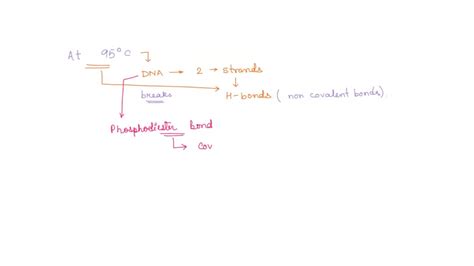 At 95°C
DNA → 2 → strands
breaks H-bonds ( non covalent bonds).
Phosphodiester bond
Cov